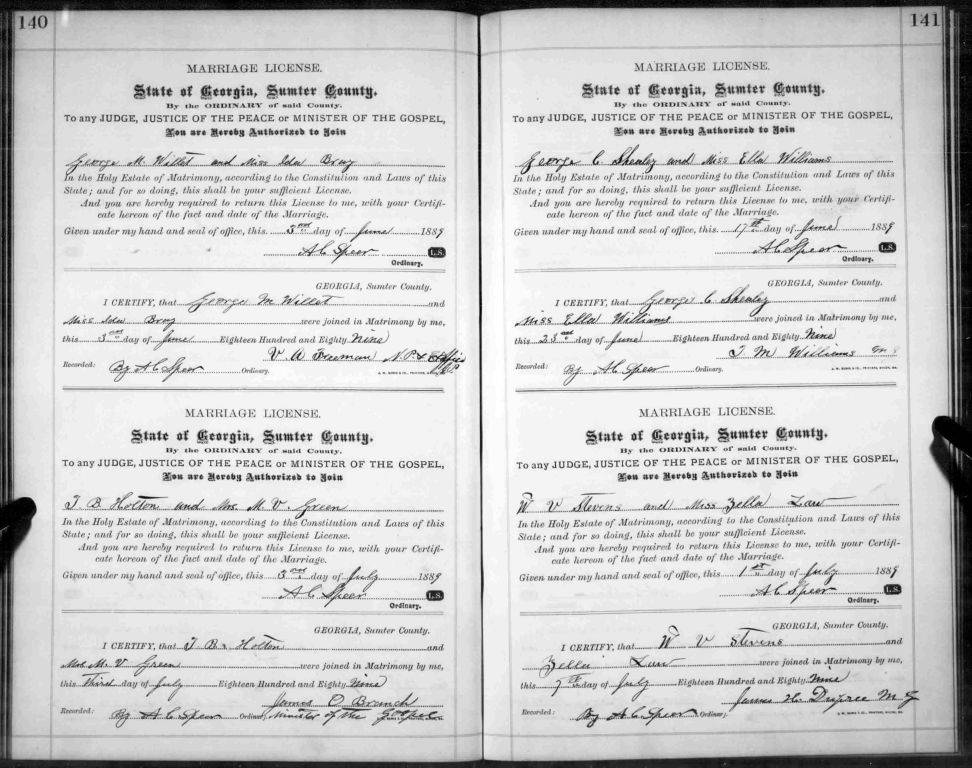 140
MARRIAGE LICENSE.
State of Georgia, Sumter County.
By the ORDINARY of said County.
To any JUDGE, JUSTICE OF THE PEACE or MINISTER OF THE GOSPEL,
You are Hereby Authorized to Join
George M. Willet and Miss Ida Bray
In the Holy Estate of Matrimony, according to the Constitution and Laws of this
State; and for so doing, this shall be your sufficient License.
And you are hereby required to return this License to me, with your Certifi-
cate hereon of the fact and date of the Marriage.
Given under my hand and seal of office, this 3rd day of June 1889
A C Speer L.S.
Ordinary.
GEORGIA, Sumter County.
I CERTIFY, that George M Willet and
Miss Ida Bray were joined in Matrimony by me,
this 3rd day of June Eighteen Hundred and Eighty Nine
V. A Freeman N.P. &
Recorded: By A C Speer Ordinary.
MARRIAGE LICENSE.
State of Georgia, Sumter County.
By the ORDINARY of said County.
To any JUDGE, JUSTICE OF THE PEACE or MINISTER OF THE GOSPEL,
You are Hereby Authorized to Join
T B Holton and Mrs. M. V. Green
In the Holy Estate of Matrimony, according to the Constitution and Laws of this
State; and for so doing, this shall be your sufficient License.
And you are hereby required to return this License to me, with your Certifi-
cate hereon of the fact and date of the Marriage.
Given under my hand and seal of office, this 3rd day of July 1889
A C Speer L.S.
Ordinary.
GEORGIA, Sumter County.
I CERTIFY, that T B. Holton and
Mrs. M. V Green were joined in Matrimony by me,
this Third day of July Eighteen Hundred and Eighty Nine
James O Branch
Recorded: By A C Speer Ordinary. Minister of the Gospel
141
MARRIAGE LICENSE.
State of Georgia, Sumter County.
By the ORDINARY of said County.
To any JUDGE, JUSTICE OF THE PEACE or MINISTER OF THE GOSPEL,
You are Hereby Authorized to Join
George C Shealy and Miss Ella Williams
In the Holy Estate of Matrimony, according to the Constitution and Laws of this
State; and for so doing, this shall be your sufficient License.
And you are hereby required to return this License to me, with your Certifi-
cate hereon of the fact and date of the Marriage.
Given under my hand and seal of office, this 17th day of June 1889
A C Speer L.S.
Ordinary.
GEORGIA, Sumter County.
I CERTIFY, that George C. Shealy and
Miss Ella Williams were joined in Matrimony by me,
this 23rd day of June Eighteen Hundred and Eighty Nine
T M Williams
Recorded: By A C Speer Ordinary.
MARRIAGE LICENSE.
State of Georgia, Sumter County.
By the ORDINARY of said County.
To any JUDGE, JUSTICE OF THE PEACE or MINISTER OF THE GOSPEL,
You are Hereby Authorized to Join
W V Stevens and Miss Zella Law
In the Holy Estate of Matrimony, according to the Constitution and Laws of this
State; and for so doing, this shall be your sufficient License.
And you are hereby required to return this License to me, with your Certifi-
cate hereon of the fact and date of the Marriage.
Given under my hand and seal of office, this 1st day of July 1889
A C Speer L.S.
Ordinary.
GEORGIA, Sumter County.
I CERTIFY, that W V Stevens and
Zella Law were joined in Matrimony by me,
this 7th day of July Eighteen Hundred and Eighty Nine
James H. Dupree M G
Recorded: By A C Speer Ordinary.